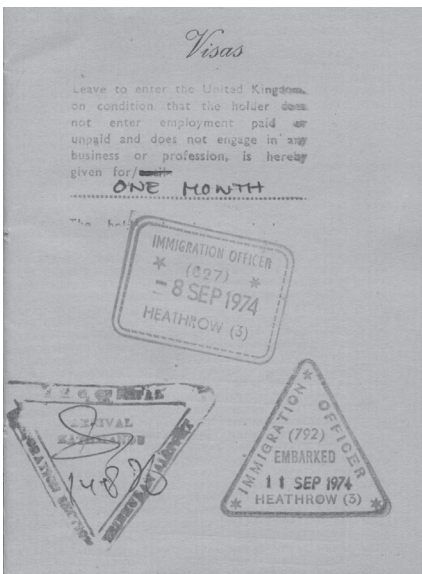 Visas
Leave to enter the United Kingdom,
on condition that the holder does
not enter employment paid or
unpaid and does not engage in any
business or profession, is hereby
given for/
ONE MONTH
The hol
IMMIGRATION OFFICER
* (027) *
- 8 SEP 1974
HEATHROW (3)
ARRIVAL
KATHMANDU
14 8 86
IMMIGRATION SECTION
TRIBHUVAN AIRPORT
IMMIGRATION OFFICER
(792)
EMBARKED
11 SEP 1974
* HEATHROW (3) *